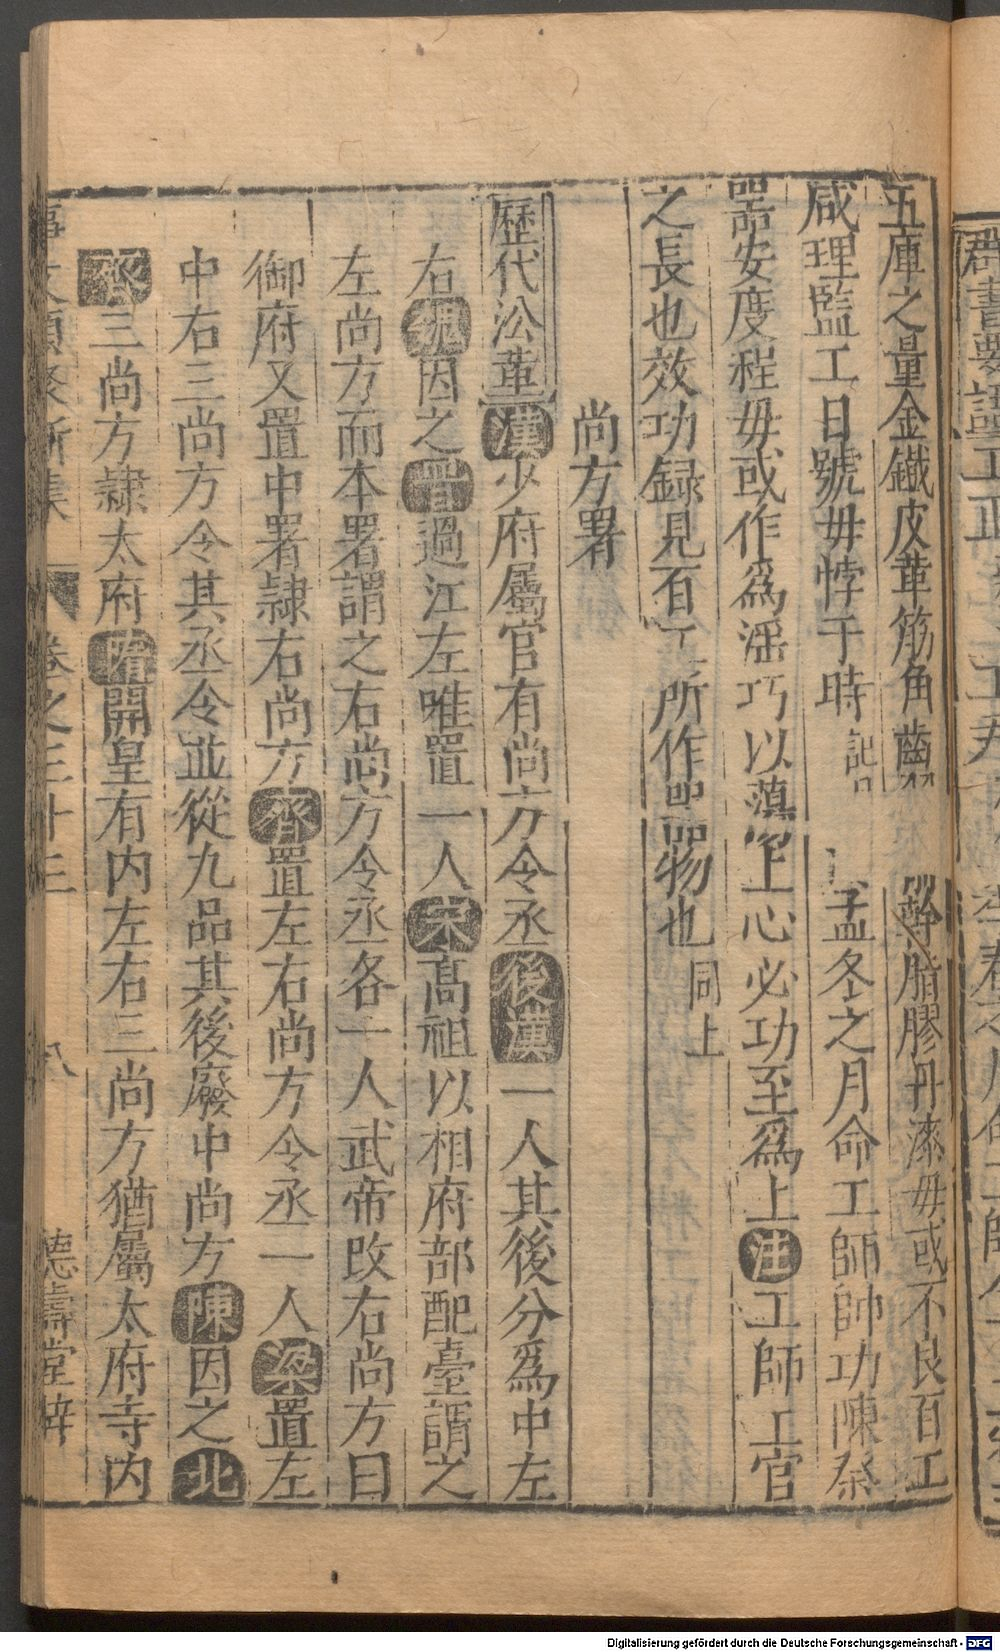 五庫之量金鐵皮革筋角齒 幹脂膠丹漆毋或不良百工
咸理監工日號毋悖于時 孟冬之月命工師師功陳祭
器安度程毋或作爲滛巧以蕩上心必功至爲上注工師工官
之長也效功録見百工所作器物也同上
尚方署
歷代沿革漢少府屬官有尚方令丞後漢一人其後分爲中左
右魏因之晋過江左唯置一人宋髙祖以相府部配臺謂之
左尚方而本署謂之右尚方令丞各一人武帝改右尚方曰
御府又置中署隷右尚方齊置左右尚方令丞一人梁置左
中右三尚方令其丞令並從九品其後廢中尚方陳因之北
齊三尚方隷太府隋開皇有内左右三尚方猶屬太府寺内
事文類聚新集 卷之三十三 八 德壽堂梓
Digitalisierung gefördert durch die Deutsche Forschungsgemeinschaft - DFG